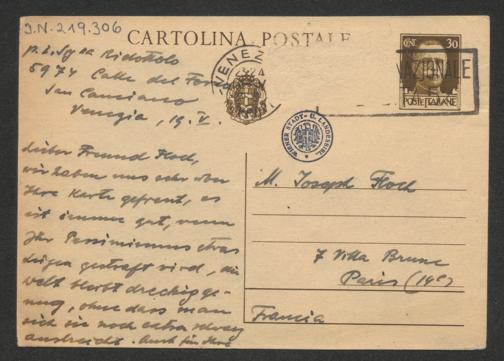 J.N. 219.306
CARTOLINA POSTALE
CENT. 30
POSTE ITALIANE
VENEZ
NAZIONALE
WIENER STADT- U. LANDESBIBL.
p. l. Sgra Ridottolo
5974 Calle del Forn
San Canciano
Venezia, 19.V.
Lieber Freund Floch,
wir haben uns sehr über
Ihre Karte gefreut, es
ist immer gut, wenn
Ihr Pessimismus etwas
Lügen gestraft wird, die
Welt bleibt dreckig ge-
nug, ohne dass man
sich sie noch extra schwarz
anstreicht. Auch für Ihre
M. Joseph Floch
7 Villa Brune
Paris (14e)
Francia